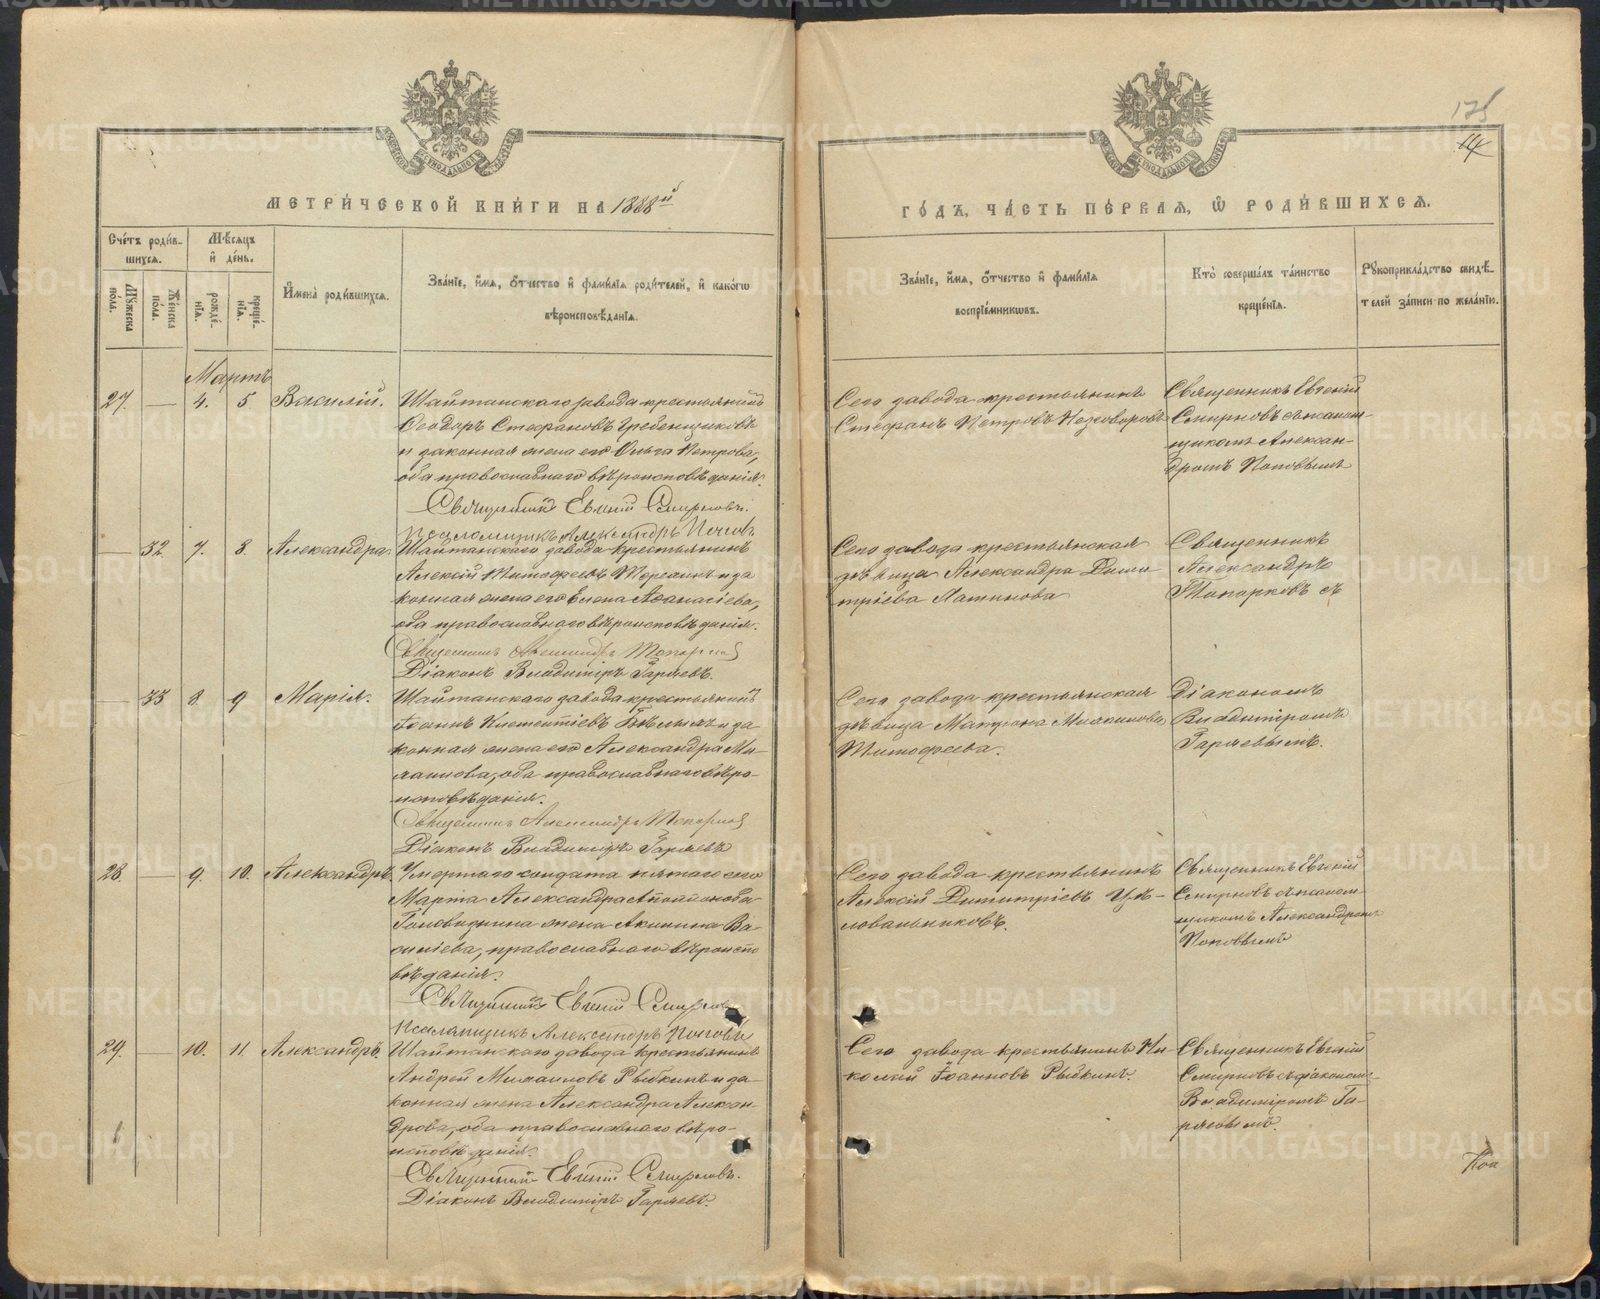 175
14
МЕТРИ́ЧЕСКОЙ КНИ́ГИ НА 1888й
ГО́ДЪ, ЧА́СТЬ ПЕ́РВАЯ, Ѡ РОДИ́ВШИХСЯ.
Сче́тъ роди́в-
шихся.
Мѣ́сяцъ
и҆ де́нь.
Му́жеска
по́ла.
Же́нска
по́ла.
рожде́-
нїя.
креще́-
нїя.
И҆мена̀ роди́вшихся.
Зва́нїе, и҆́мя, ѻ҆́тчество и҆ фамі́лїя роди́телей, и҆ како́гѡ
вѣроисповѣ́данїя.
Зва́нїе, и҆́мя, ѻ҆́тчество и҆ фамі́лїя
воспрїе́мникѡвъ.
Кто̀ соверша́лъ та́инство
креще́нїя.
Рꙋкоприкла́дство свидѣ́-
телей за́писи по жела́нїю.
Мартъ
27. — 4. 5 Василій.
Шайтанскаго завода крестьянинъ
Ѳеодоръ Стефановъ Гребенщиковъ
и законная жена его Ольга Петрова,
оба православнаго вѣроисповѣданія.
Священникъ Евгеній Смирновъ.
Псаломщикъ Александръ Поповъ
Сего завода крестьянинъ
Стефанъ Петровъ Незговоровъ
Священникъ Евгеній
Смирновъ съ псалом-
щикомъ Алексан-
дромъ Поповымъ
— 32 7. 8. Александра.
Шайтанскаго завода крестьянинъ
Алексій Тимофеевъ и за
конная жена его Елена Аѳанасіева,
оба православнаго вѣроисповѣданія.
Священникъ Александръ Топорковъ
Діаконъ Владиміръ Гаряевъ.
Сего завода крестьянская
дѣвица Александра Дими
тріева
Священникъ
Александръ
Топорковъ съ
— 33 8. 9 Марія.
Шайтанскаго завода крестьянинъ
Іоаннъ Климентіевъ Бѣлыхъ и за
конная жена его Александра Ми-
хаилова, оба православнаго вѣро-
исповѣданія.
Священникъ Александръ Топорковъ
Діаконъ Владиміръ Гаряевъ
Сего завода крестьянская
дѣвица Матрона
Тимофеева.
Діакономъ
Владиміромъ
Гаряевымъ.
28. — 9. 10. Александръ.
Умершаго солдата пятаго сего
Марта Александра
жена Акилина Ва
силіева, православнаго вѣроиспо
вѣданія.
Священникъ Евгеній Смирновъ
Псаломщикъ Александръ Поповъ
Сего завода крестьянинъ
Алексій Димитріевъ Цѣ-
ловальниковъ.
Священникъ Евгеній
Смирновъ съ псалом-
щикомъ Александромъ
Поповымъ
29. — 10. 11. Александръ.
Шайтанскаго завода крестьянинъ
Андрей Михаиловъ Рыбкинъ и за-
конная жена Александра Алексан-
дрова, оба православнаго вѣро-
исповѣданія.
Священникъ Евгеній Смирновъ.
Діаконъ Владиміръ Гаряевъ.
Сего завода крестьянинъ Ни-
колай Іоанновъ Рыбкинъ.
Священникъ Евгеній
Смирновъ съ діакономъ
Владиміромъ Га-
ряевымъ.